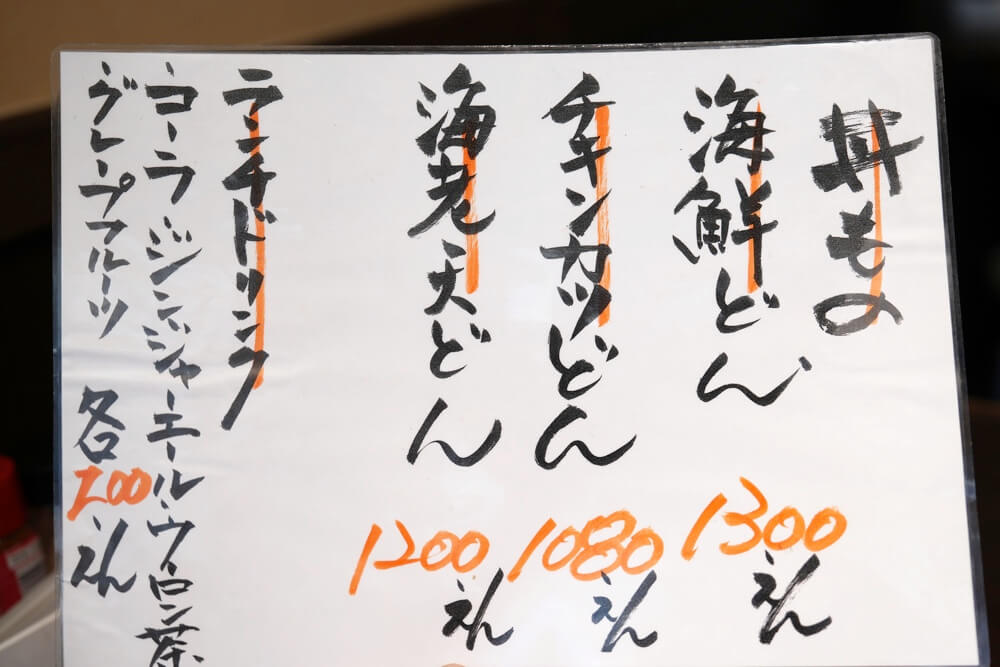 丼もの
海鮮どん 1300えん
チキンカツどん 1080えん
海老天どん 1200えん
ランチドリンク
・コーラ・ジンジャーエール・ウーロン茶
・グレープフルーツ 各200えん